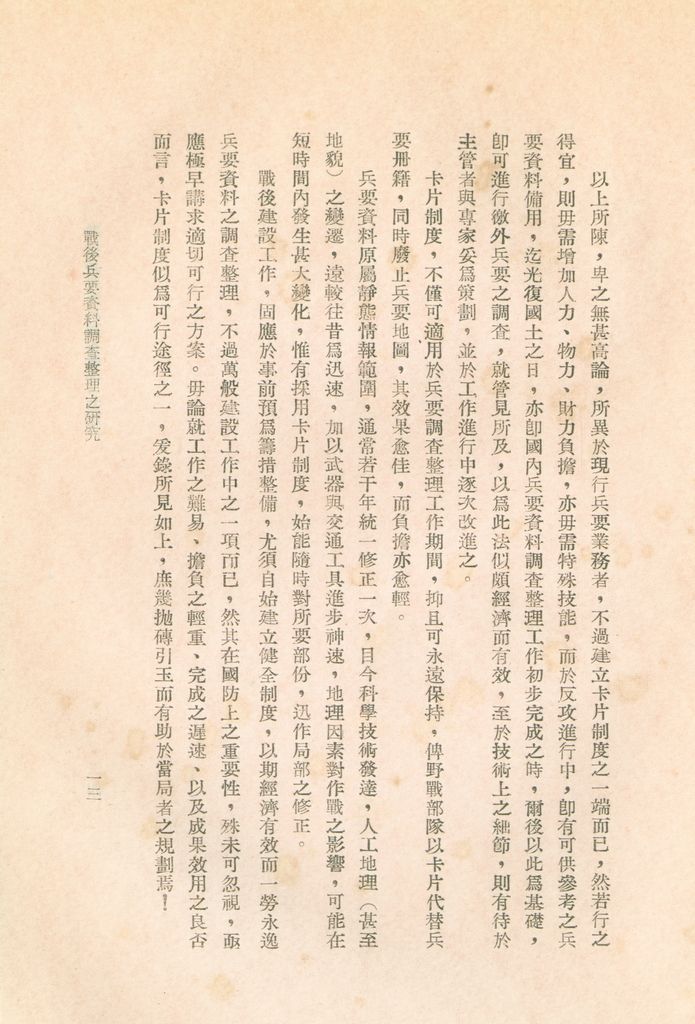 以上所陳，卑之無甚高論，所異於現行兵要業務者，不過建立卡片制度之一端而已，然若行之
得宜，則毋需增加人力、物力、財力負擔，亦毋需特殊技能，而於反攻進行中，卽有可供參考之兵
要資料備用，迄光復國土之日，亦卽國內兵要資料調查整理工作初步完成之時，爾後以此爲基礎，
卽可進行徼外兵要之調查，就管見所及，以爲此法似頗經濟而有效，至於技術上之細節，則有待於
主管者與專家妥爲策劃，並於工作進行中逐次改進之。
卡片制度，不僅可適用於兵要調查整理工作期間，抑且可永遠保持，俾野戰部隊以卡片代替兵
要册籍，同時廢止兵要地圖，其效果愈佳，而負擔亦愈輕。
兵要資料原屬靜態情報範圍，通常若干年統一修正一次，目今科學技術發達，人工地理（甚至
地貌）之變遷，遠較往昔爲迅速，加以武器與交通工具進步神速，地理因素對作戰之影響，可能在
短時間內發生甚大變化，惟有採用卡片制度，始能隨時對所要部份，迅作局部之修正。
戰後建設工作，固應於事前預爲籌措整備，尤須自始建立健全制度，以期經濟有效而一勞永逸
兵要資料之調查整理，不過萬般建設工作中之一項而已，然其在國防上之重要性，殊未可忽視，亟
應極早講求適切可行之方案。毋論就工作之難易、擔負之輕重、完成之遲速、以及成果效用之良否
而言，卡片制度似爲可行途徑之一，爰錄所見如上，庶幾拋磚引玉而有助於當局者之規劃焉！
戰後兵要資料調查整理之研究
一三